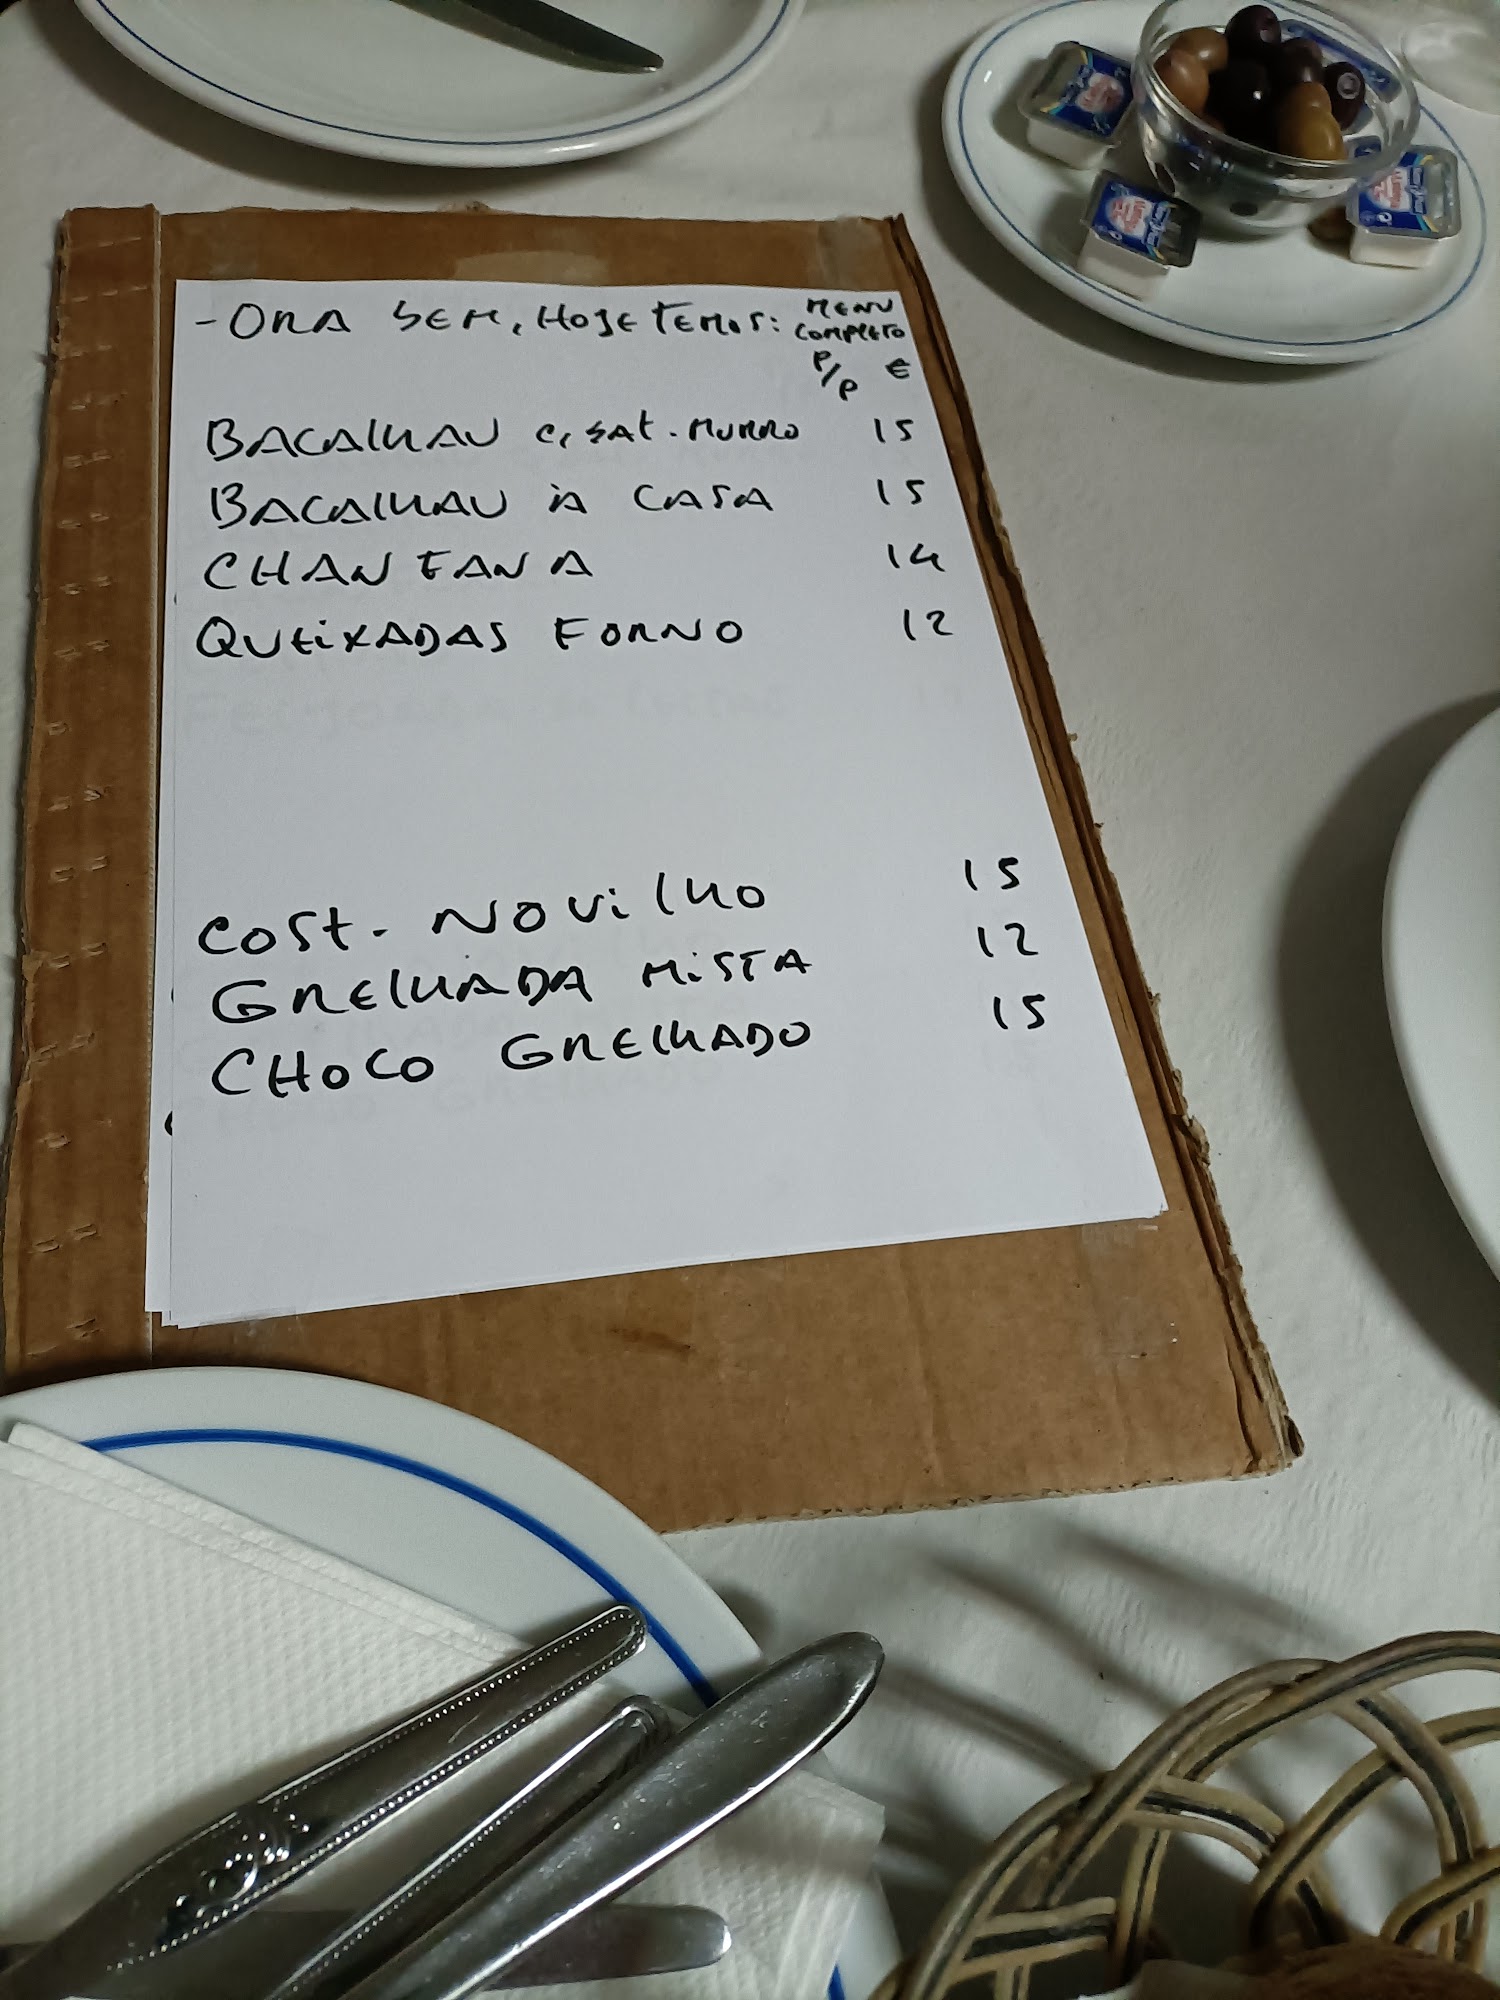 - ORA BEM, HOJE TEMOS: MENU
COMPLETO
P/P €
BACALHAU C, BAT. MURRO 15
BACALHAU À CASA 15
CHANFANA 14
QUEIXADAS FORNO 12
COST. NOVILHO 15
GRELHADA MISTA 12
CHOCO GRELHADO 15